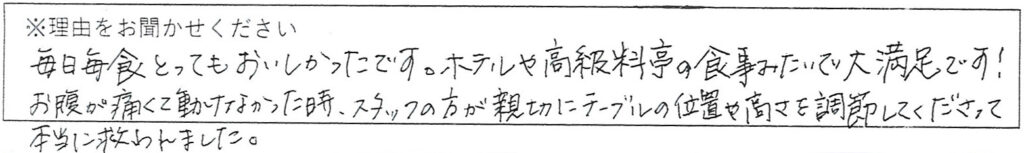 ※理由をお聞かせください
毎日毎食とってもおいしかったです。ホテルや高級料亭の食事みたいで大満足です!
お腹が痛くて動けなかった時、スタッフの方が親切にテーブルの位置や高さを調節してくださって
本当に救われました。